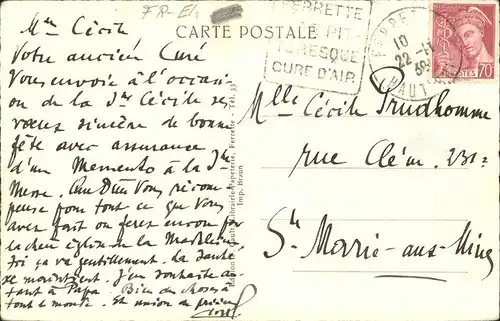 Mlle Cécile
Votre ancien Curé
Vous envoie à l'occasi-
on de la Ste Cécile ses
vœux sincère de bonne
fête avec assurance
d'un Memento à la Ste
Messe. Que Dieu Vous récom-
pense pour tout ce que Vous
avez fait ou ferez encore pour
la chère église de la Madeleine
Ici ça va gentillement. La santé
se maintient. J'en souhaite au-
tant à Papa. Bien des choses à
tout le monde. Et union de prières
FR-El.
CARTE POSTALE
FERRETTE
PIT-
TORESQUE
CURE D'AIR
FERRETTE
10
22-11
HAUT-RHIN
POSTES 70
Mlle Cécile Prudhomme
rue Clém. 231
Ste Marie-aux-Mines
Librairie-Papeterie, Ferrette - Tél. 33
Imp. Braun